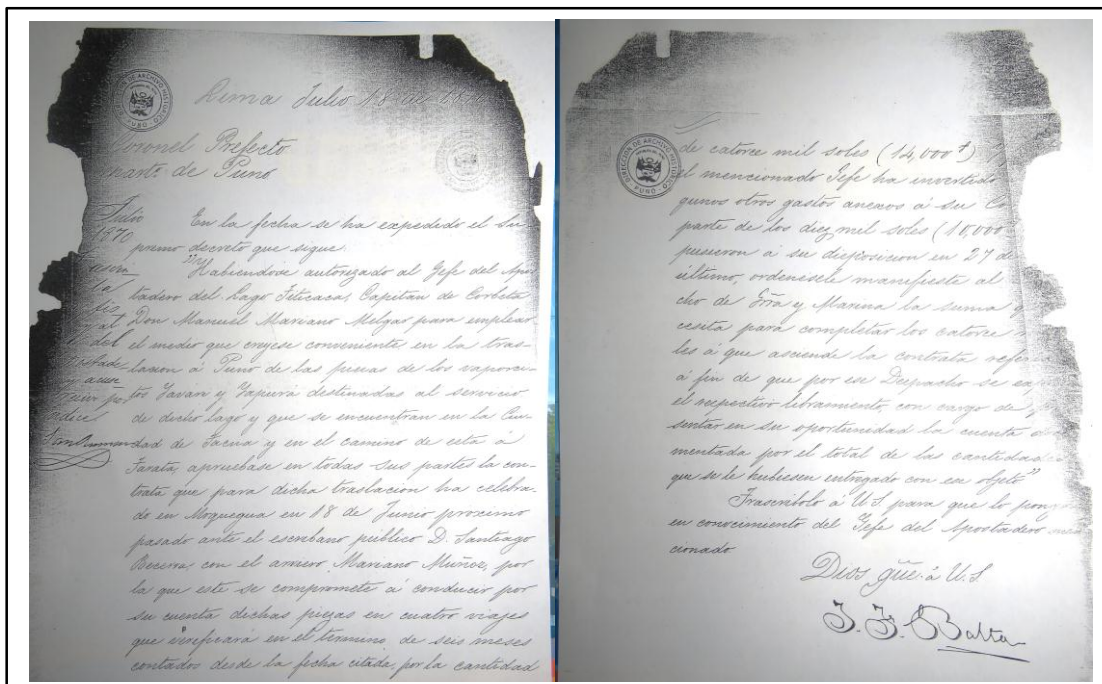 DIRECCION DE ARCHIVO HISTORICO
PUNO
Lima Julio 18 de 1870
Coronel Prefecto
part.º de Puno
Julio
1870
En la fecha se ha expedido el Su-
premo decreto que sigue
"Habiendose autorizado al Jefe del Apos-
tadero del Lago Titicaca, Capitan de Corbeta
Don Manuel Mariano Melgar para emplear
el medio que creyese conveniente en la tras-
lacion á Puno de las piezas de los vaporci-
tos Yavari y Yapurá destinados al servicio
de dicho lago y que se encuentran en la Ciu-
dad de Tacna y en el camino de esta á
Tarata, apruebase en todas sus partes la con-
trata que para dicha traslacion ha celebra-
do en Moquegua en 18 de Junio proximo
pasado ante el escribano publico D. Santiago
Becerra, con el arriero Mariano Muñoz, por
la que este se compromete á conducir por
su cuenta dichas piezas en cuatro viajes
que verificará en el termino de seis meses
contados desde la fecha citada, por la cantidad
DIRECCION DE ARCHIVO HISTORICO
PUNO
de catorce mil soles (14,000
el mencionado Jefe ha invertido
gunos otros gastos anexos á su
parte de los diez mil soles (10,000
pusieron á su disposicion en 27 de
último, ordenesele manifieste al
cho de Grra y Marina la suma
cesita para completar los catorce
les á que asciende la contrata
á fin de que por ese Despacho se
el respectivo libramiento, con cargo de
sentar en su oportunidad la cuenta
mentada por el total de las cantidades
que se le hubiesen entregado con ese objeto"
Trascribolo á U.S. para que lo ponga
en conocimiento del Jefe del Apostadero
cionado
Dios gũe. á U.S
J. F. Balta